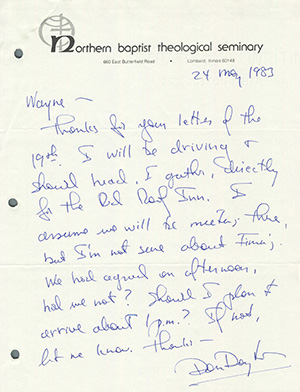 northern baptist theological seminary
660 East Butterfield Road • Lombard, Illinois 60148
24 May 1983
Wayne —
Thanks for your letter of the
19th. I will be driving &
should head, I gather, directly
for the Red Roof Inn. I
assume we will be meeting there,
but I'm not sure about timing.
We had agreed on afternoon,
had we not? Should I plan to
arrive about 1 p.m.? If not,
let me know. Thanks —
Don Dayton